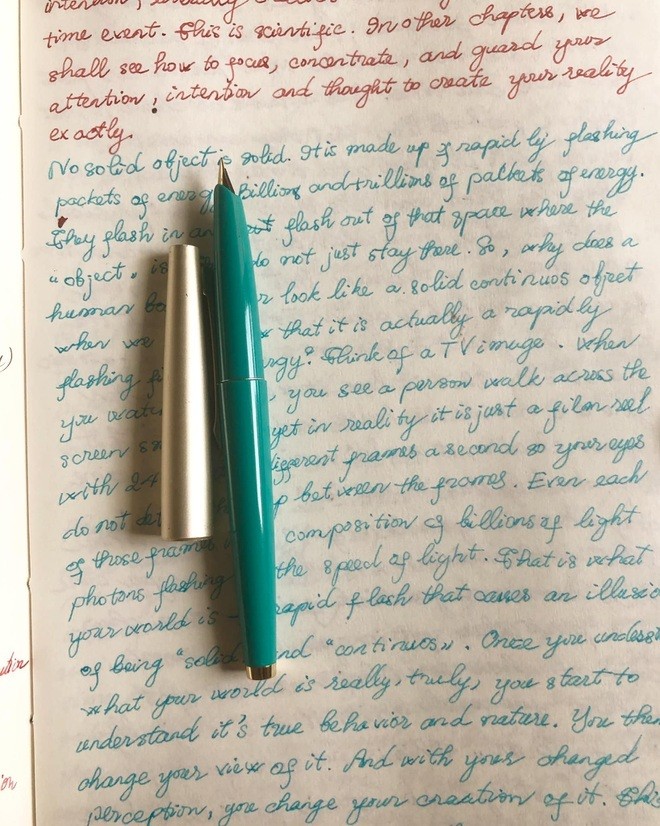 time event. This is scientific. In other chapters, we
shall see how to focus, concentrate, and guard your
attention, intention and thought to create your reality
exactly.
No solid object is solid. It is made up of rapidly flashing
packets of energy. Billions and trillions of packets of energy.
They flash in an out flash out of that space where the
"object" is do not just stay there. So, why does a
human look like a solid continuos object
when we that it is actually a rapidly
flashing Think of a TV image. When
you you see a person walk across the
screen yet in reality it is just a film reel
with 24 different frames a second so your eyes
do not between the frames. Even each
of those frames composition of billions of light
photons flashing the speed of light. That is what
your world is - rapid flash that causes an
of being "solid and "continuos". Once you
what your world is really, truly, you start to
understand it's true behavior and nature. You then
change your view of it. And with your changed
perception, you change your creation of it. This